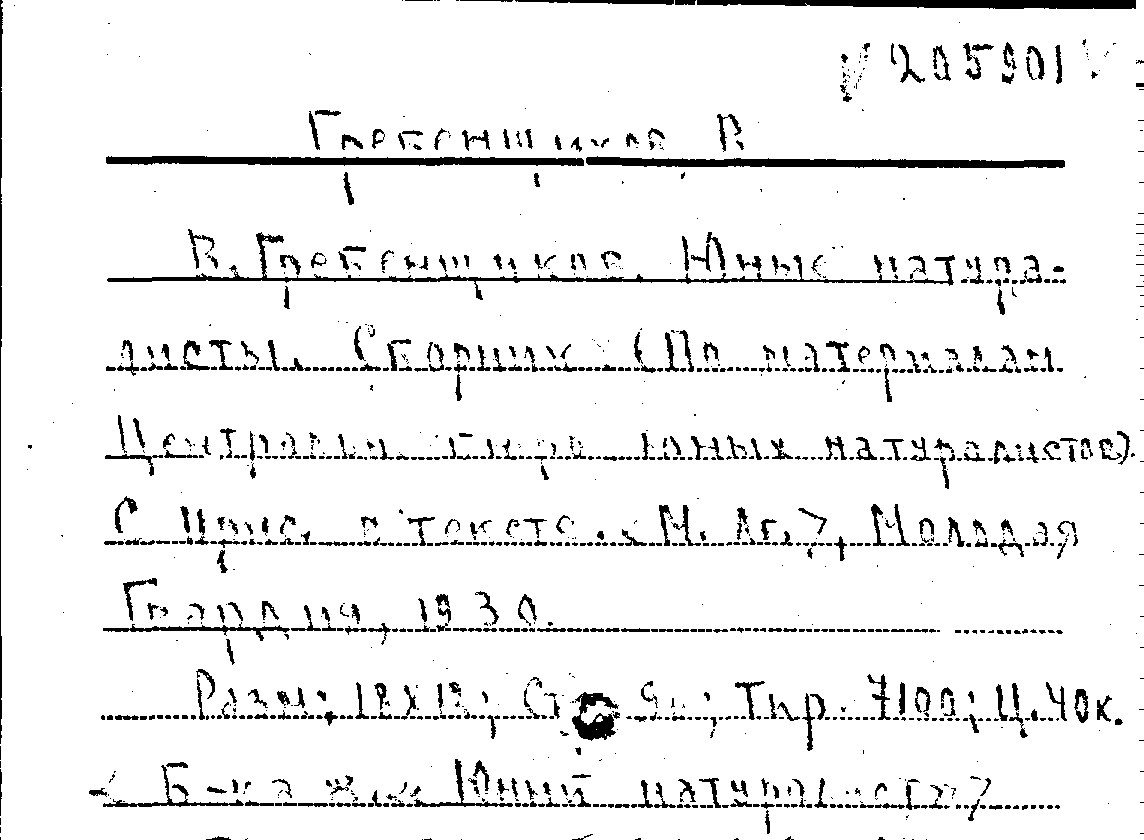 205901
Гребенщиков В
В. Гребенщиков. Юные натура-
листы. Сборник. (По материалам
Центральн. бюро юных натуралистов).
С рис. в тексте. <М. Лг.>, Молодая
Гвардия, 1930.
Разм: Стр. Тир. 7100; Ц. 40к.
< Б-ка ж. « Юный натуралист»>